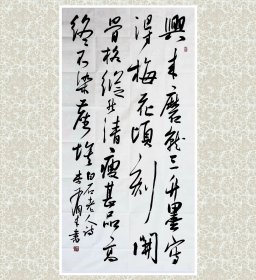 興來磨就三升墨寫
得梅花頃刻開
骨格縱然清瘦甚品高
終不染塵埃 白石老人詩
李 書